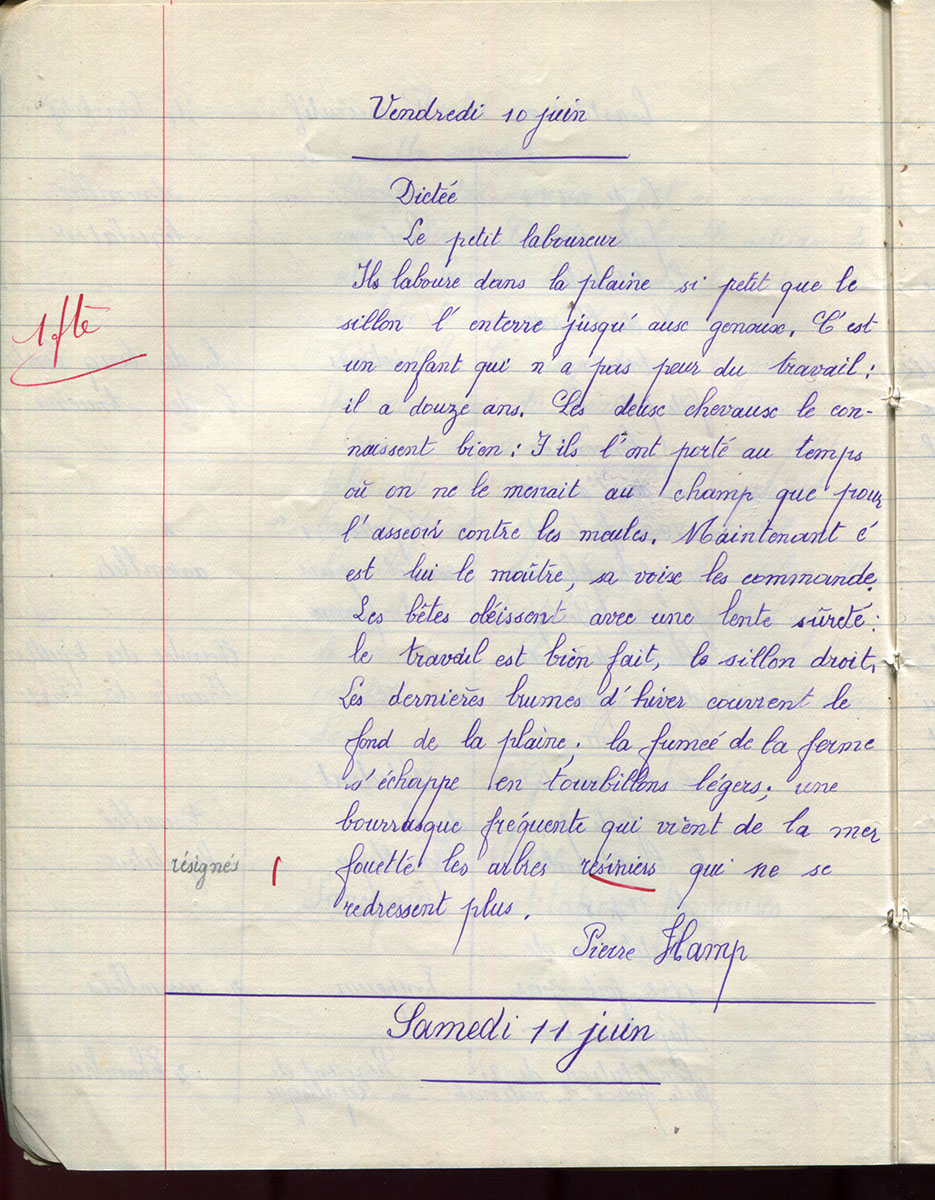 Vendredi 10 juin
Dictée
Le petit laboureur
1 fte
Ils laboure dans la plaine si petit que le
sillon l'enterre jusqu'aux genoux. C'est
un enfant qui n'a pas peur du travail :
il a douze ans. Les deux chevaux le con-
naissent bien : I ils l'ont porté au temps
où on ne le menait au champ que pour
l'asseoir contre les meules. Maintenant c'
est lui le maître, sa voix les commande.
Les bêtes obéissent avec une lente sûreté :
le travail est bien fait, le sillon droit,
Les dernières brumes d'hiver couvrent le
fond de la plaine. la fumeé de la ferme
s'échappe en tourbillons légers; une
bourrasque fréquente qui vient de la mer
résignés fouetté les arbres résiniers qui ne se
redressent plus.
Pierre Hamp
Samedi 11 juin